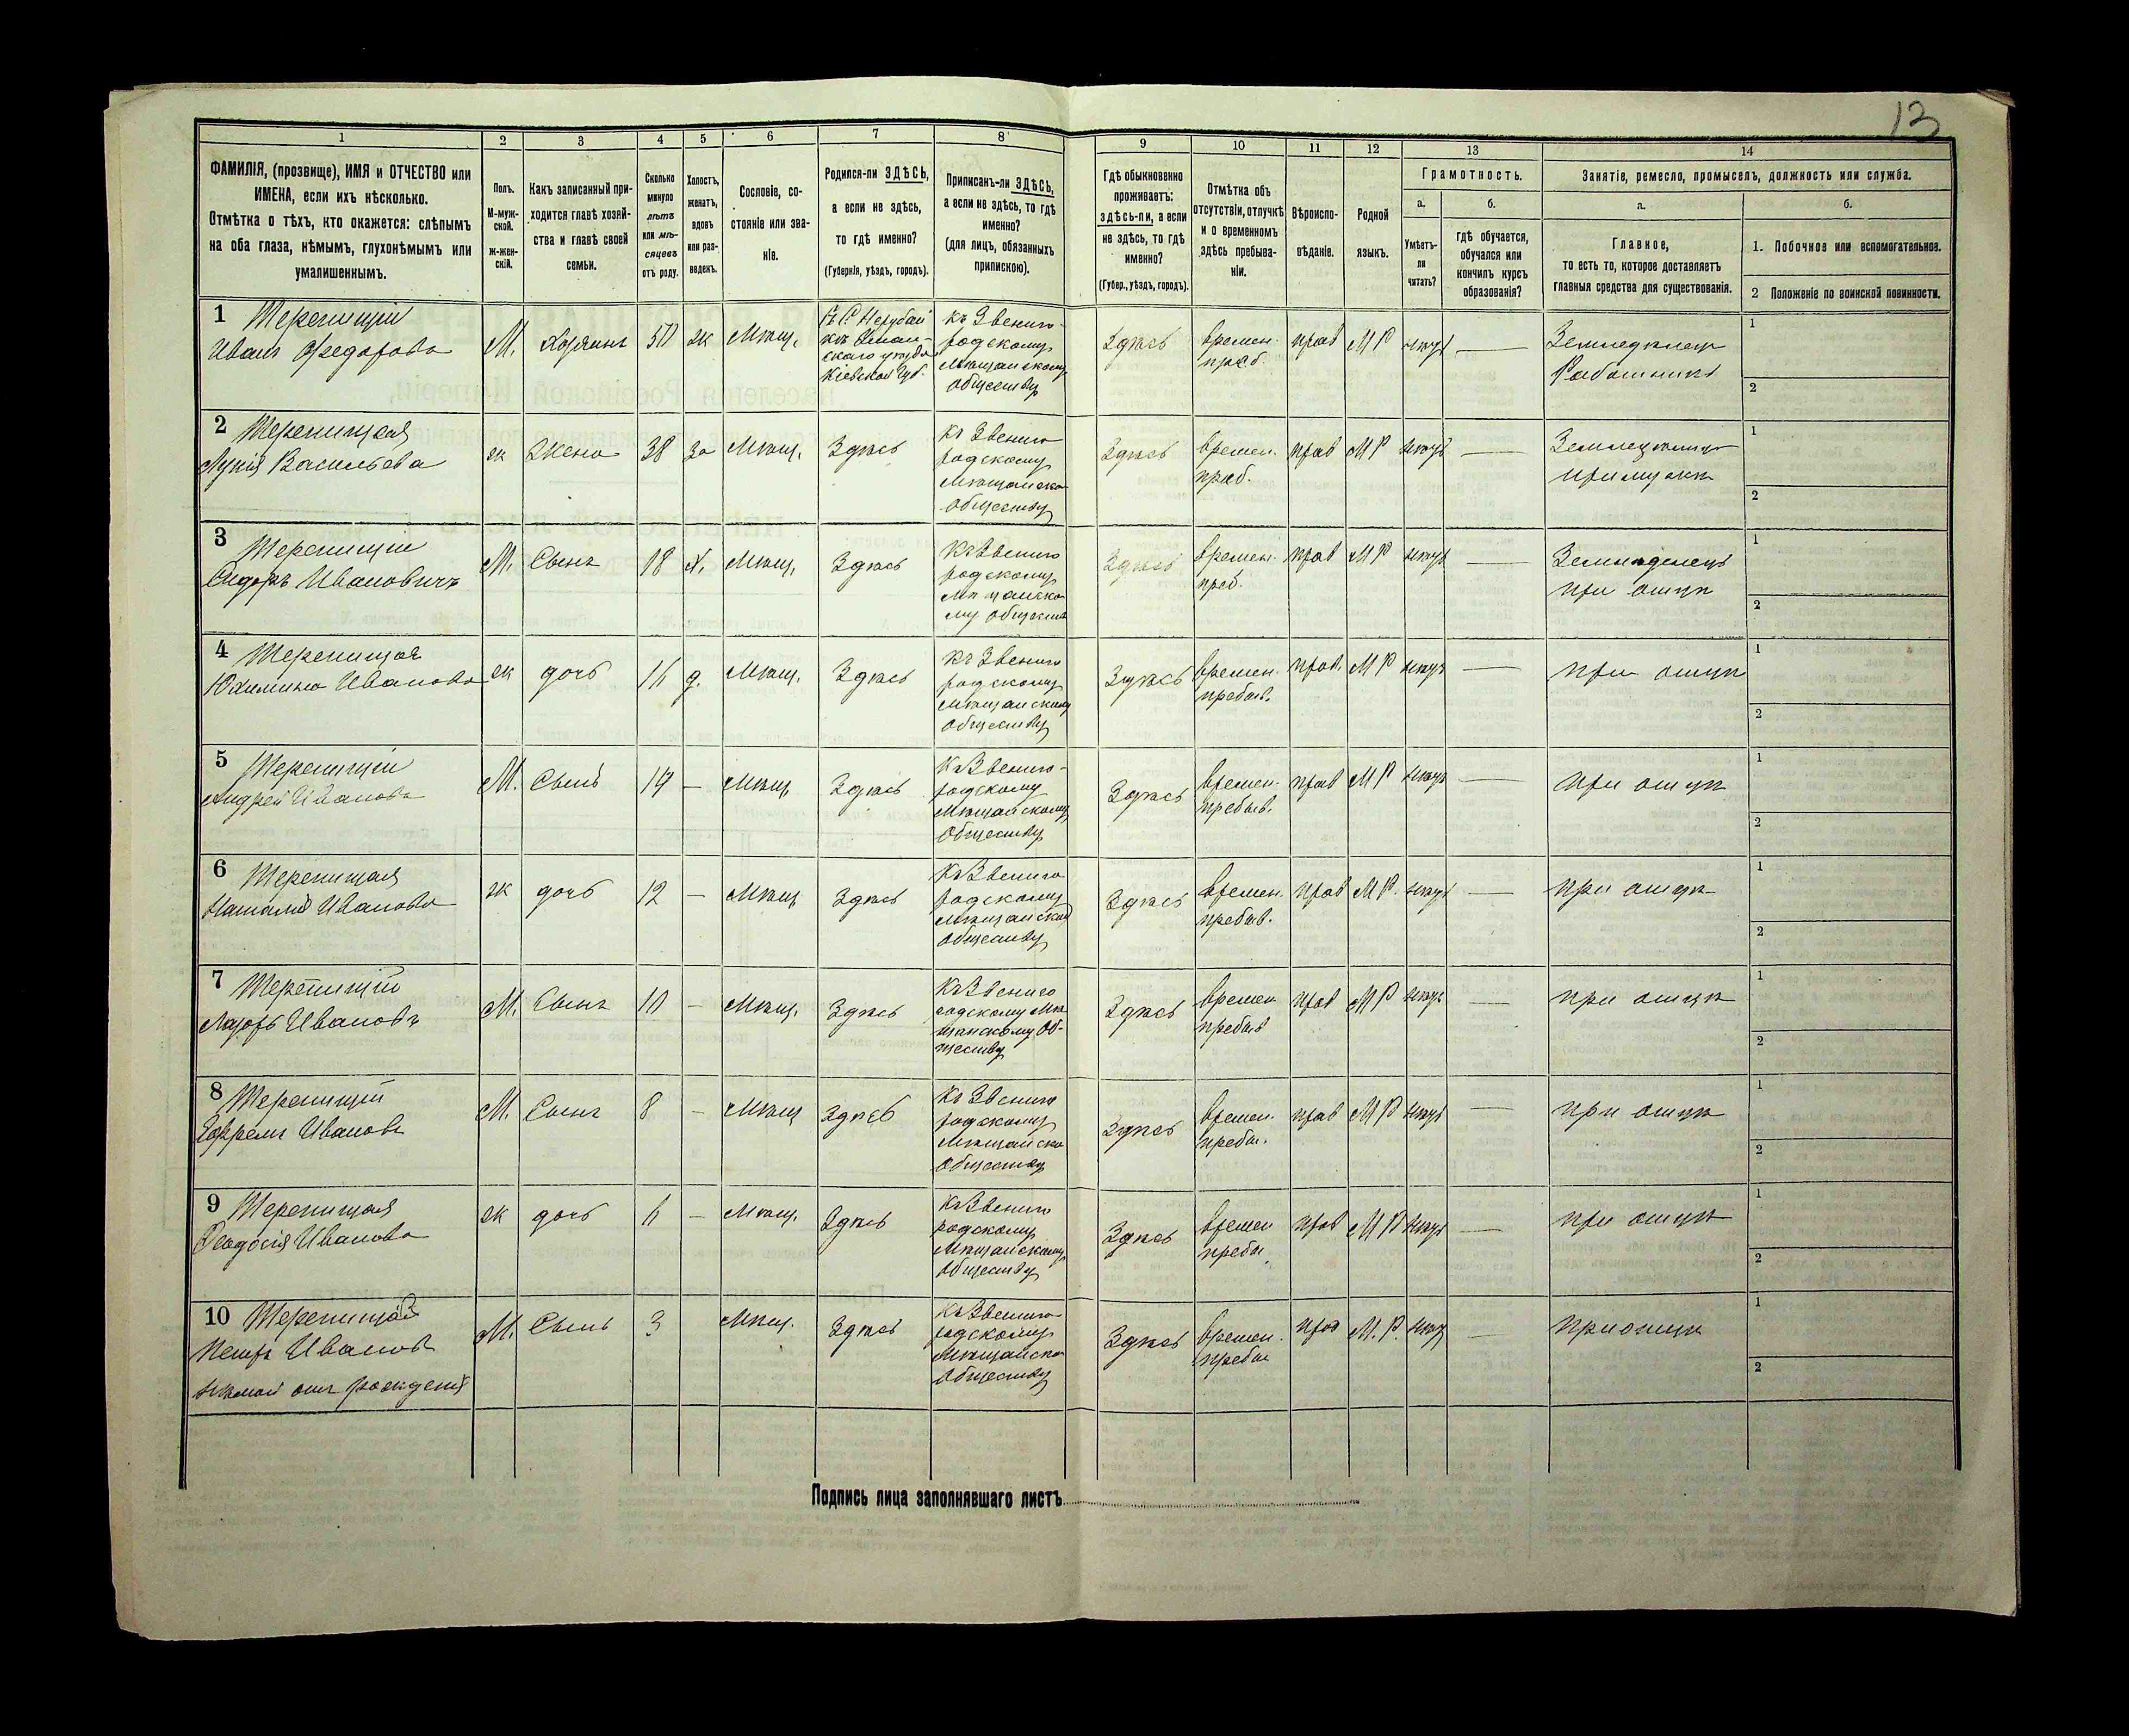 13
1 2 3 4 5 6 7 8 9 10 11 12 13 14
ФАМИЛІЯ, (прозвище), ИМЯ и ОТЧЕСТВО или
ИМЕНА, если ихъ нѣсколько.
Отмѣтка о тѣхъ, кто окажется: слѣпымъ
на оба глаза, нѣмымъ, глухонѣмымъ или
умалишеннымъ.
Полъ.
М-муж-
ской.
ж-жен-
скій.
Какъ записанный при-
ходится главѣ хозяй-
ства и главѣ своей
семьи.
Сколько
минуло
лѣтъ
или мѣ-
сяцевъ
отъ роду.
Холостъ,
женатъ,
вдовъ
или раз-
веденъ.
Сословіе, со-
стояніе или зва-
ніе.
Родился-ли ЗДѢСЬ,
а если не здѣсь,
то гдѣ именно?
(Губернія, уѣздъ, городъ).
Приписанъ-ли ЗДѢСЬ,
а если не здѣсь, то гдѣ
именно?
(для лицъ, обязанныхъ
припискою).
Гдѣ обыкновенно
проживаетъ:
здѣсь-ли, а если
не здѣсь, то гдѣ
именно?
(Губер., уѣздъ, городъ).
Отмѣтка объ
отсутствіи, отлучкѣ
и о временномъ
здѣсь пребыва-
ніи.
Вѣроиспо-
вѣданіе.
Родной
языкъ.
Грамотность.
а.
Умѣетъ-
ли
читать?
б.
гдѣ обучается,
обучался или
кончилъ курсъ
образованія?
Занятіе, ремесло, промыселъ, должность или служба.
а.
Главное,
то есть то, которое доставляетъ
главныя средства для существованія.
б.
1. Побочное или вспомогательное.
2 Положеніе по воинской повинности.
1
Иванъ Федорова
М. Хозяинъ 50 ж Мѣщ.
Кіевской Губ.
къ Звениго-
родскому
Мѣщанскому
Обществу
Здѣсь
времен.
прав М Р
Земледѣлец
Работникъ
1
2
2
Васильева
ж Жена 38 за Мѣщ. Здѣсь
къ Звениго
родскому
Мѣщанско
Обществу
Здѣсь
времен.
прав М Р
при мужѣ
1
2
3
Сидоръ Ивановичъ
М. Сынъ 18 х. Мѣщ. Здѣсь
къ Звениго
родскому
Мѣщанско
му обществ
Здѣсь
времен.
прав М Р
Земледелецъ
при отцѣ
1
2
4
Юхимина Иванова
ж дочь д. Мѣщ. Здѣсь
къ Звениго
родскому
Мѣщанскому
Обществу
Здѣсь
времен.
пребыв.
прав. М Р
при отцѣ
1
2
5
Андрей Иванова
М. Сынъ 14 — Мѣщ. Здѣсь
къ Звениго-
родскому
Мѣщанскому
Обществу
Здѣсь
времен.
пребыв.
прав М Р
при отцѣ
1
2
6
Наталія Иванова
ж дочь 12 — Мѣщ. Здѣсь
къ Звениго
родскому
Мѣщанской
Обществу
Здѣсь
времен.
пребыв.
прав М Р.
при отцѣ
1
2
7
Лазорь Ивановъ
М. Сынъ 10 — Мѣщ. Здѣсь
къ Звениго
родскому Мѣ
щанскому Об-
ществу
Здѣсь
времен
пребыв
прав М Р
при отцѣ
1
2
8
Ефремъ Ивановъ
М. Сынъ 8 — Мѣщ Здѣсь
къ Звениго
родскому
Мѣщанско
Обществу
Здѣсь
времен.
пребы.
прав М Р
при отцѣ
1
2
9
Феодосія Иванова
ж дочь 6 — Мѣщ. Здѣсь
къ Звениго
родскому
Мѣщанскому
Обществу
Здѣсь
времен
пребы
прав М Р
при отцѣ
1
2
10
Петръ Иванов
нѣмой отъ рожденія
М. Сынъ 3 Мѣщ. Здѣсь
къ Звениго
родскому
Мѣщанско
Обществу
Здѣсь
времен.
пребы
прав М. Р.
при отцѣ
1
2
Подпись лица заполнявшаго листъ